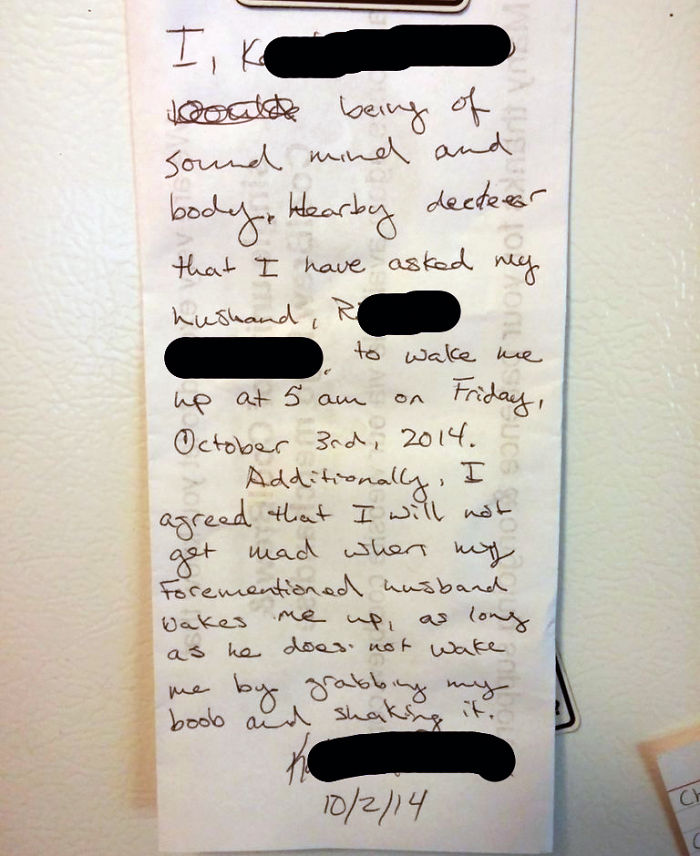 I, K
being of
sound mind and
body, Hearby
that I have asked my
husband, R
to wake me
up at 5 am on Friday,
October 3rd, 2014.
Additionally, I
agreed that I will not
get mad when my
Forementioned husband
wakes me up, as long
as he does not wake
me by grabbing my
boob and shaking it.
K
10/2/14
Ch